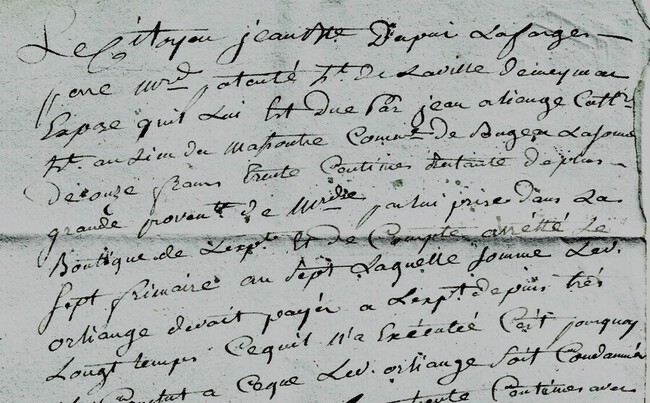 Le Citoyen jean Bte Dupui Lafarges
pere mrd patenté ht. de Laville demeymac
Expose quil Lui Est due par jean orliange Cultr
ht. au Lieu du Massoutre Comne de Bugea Lasome
de onze frans trente Centimes Restante de plus
grande provente de Mrdise par lui prise dans La
Boutique de Lexpt Et de Compte arrêtté Le
sept frimaire an sept Laquelle somme Led.
orliange devait payér a Lexpt. depuis très
Longt temps Cequil N'a Exécutéé C'est pourquoy
a Ceque Led. orliange soit Condamnér
trente Centimes avec